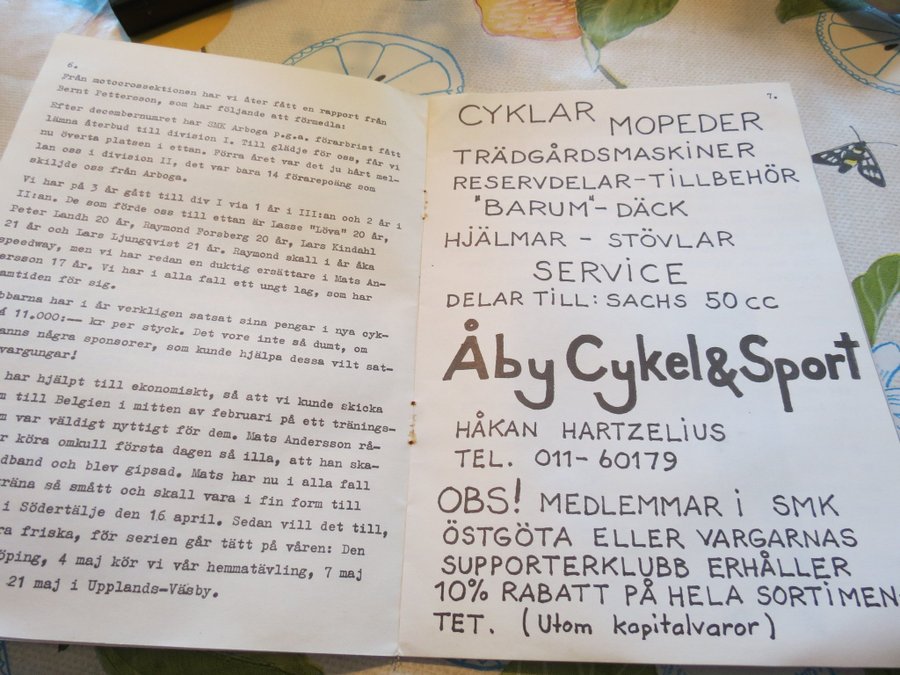 6.
Från motocrossektionen har vi åter fått en rapport från
Bernt Pettersson, som har följande att förmedla:
Efter decembernumret har SMK Arboga p.g.a. förarbrist fått
lämna återbud till division I. Till glädje för oss, får vi
nu överta platsen i ettan. Förra året var det ju hårt mel-
lan oss i division II, det var bara 14 förarepoäng som
skiljde oss från Arboga.
Vi har på 3 år gått till div I via 1 år i III:an och 2 år i
II:an. De som förde oss till ettan är Lasse "Löva" 20 år,
Peter Landh 20 år, Raymond Forsberg 20 år, Lars Kindahl
21 år och Lars Ljungqvist 21 år. Raymond skall i år åka
speedway, men vi har redan en duktig ersättare i Mats An-
ersson 17 år. Vi har i alla fall ett ungt lag, som har
amtiden för sig.
bbarna har i år verkligen satsat sina pengar i nya cyk-
å 11.000:-- kr per styck. Det vore inte så dumt, om
anns några sponsorer, som kunde hjälpa dessa vilt sat-
vargungar!
har hjälpt till ekonomiskt, så att vi kunde skicka
m till Belgien i mitten av februari på ett tränings-
m var väldigt nyttigt för dem. Mats Andersson rå-
r köra omkull första dagen så illa, att han ska-
dband och blev gipsad. Mats har nu i alla fall
träna så smått och skall vara i fin form till
i Södertälje den 16 april. Sedan vill det till,
ra friska, för serien går tätt på våren: Den
öping, 4 maj kör vi vår hemmatävling, 7 maj
21 maj i Upplands-Väsby.
7.
CYKLAR MOPEDER
TRÄDGÅRDSMASKINER
RESERVDELAR-TILLBEHÖR
"BARUM"-DÄCK
HJÄLMAR - STÖVLAR
SERVICE
DELAR TILL: SACHS 50 CC
Åby Cykel & Sport
HÅKAN HARTZELIUS
TEL. 011-60179
OBS! MEDLEMMAR i SMK
ÖSTGÖTA ELLER VARGARNAS
SUPPORTERKLUBB ERHÅLLER
10% RABATT PÅ HELA SORTIMEN-
TET. (Utom kapitalvaror)